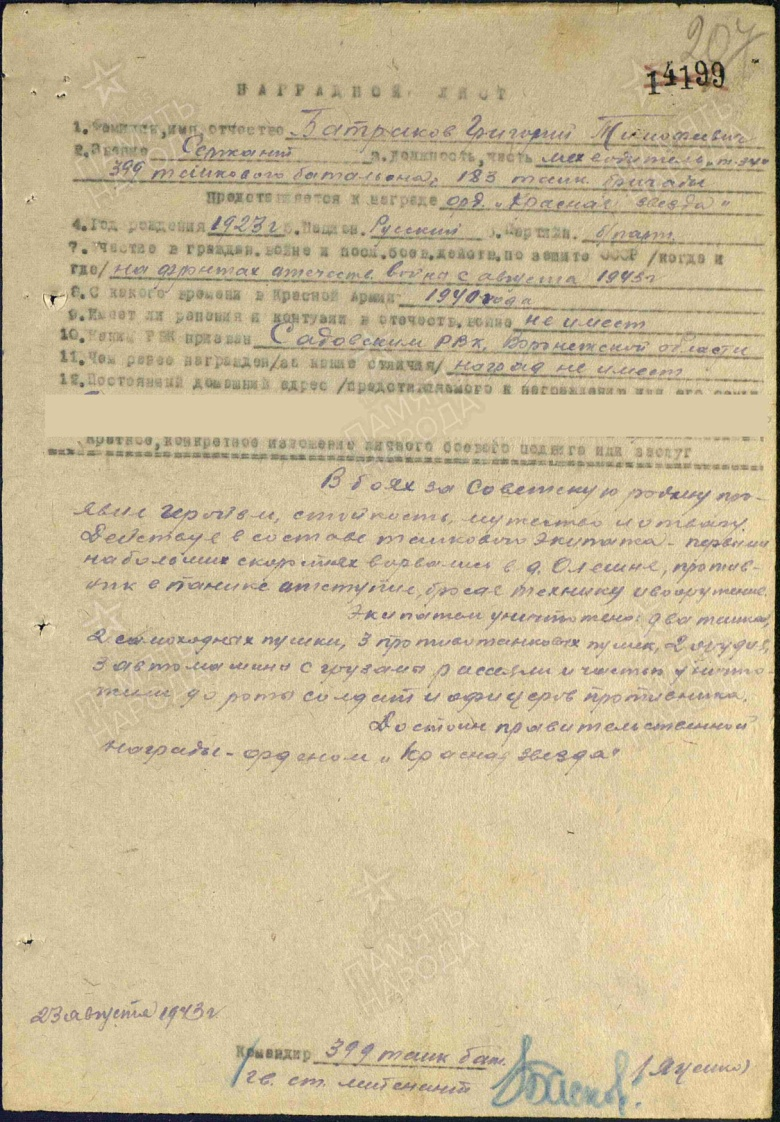 207
14199
НАГРАДНОЙ ЛИСТ
1. Фамилия, имя, отчество Батраков Григорий Тимофевич
2. Звание Сержант 3. должность, часть мех водитель т-34
399 танкового батальона, 183 танк. бригады
Представляется к награде орд. "Красная звезда"
4. Год рождения 1923 г 5. Национ. Русский 6. Партийн. б/парт.
7. Участие в граждан. войне и посл. боев. действ. по защите СССР /когда и
где/ на фронтах отечеств. война с августа 1943 г
8. С какого времени в Красной Армии 1940 года
9. Имеет ли ранения и контузии в отечеств. войне не имеет
10. Каким РВК призван Садовским РВК, Воронежской области
11. Чем ранее награжден /за какие отличия/ наград не имеет
12. Постоянный домашний адрес /представляемого к награждению или его семьи
Краткое, конкретное изложение личного боевого подвига или заслуг
В боях за Советскую родину про-
явил героизм, стойкость, мужество и отвагу.
Действуя в составе танкового экипажа - первыми
на больших скоростях ворвались в д. Олешня, против-
ник в панике отступил, бросая технику и вооружение.
Экипажем уничтожено: два танка,
2 самоходных пушки, 3 противотанковых пушек, 2 орудия,
3 автомашины с грузами рассеяли и частью уничто-
жили до роты солдат и офицеров противника.
Достоин правительственной
награды - орденом "Красная звезда"
23 августа 1943 г.
Командир 399 танк бат.
гв. ст. лейтенант
/Яценко/
ПАМЯТЬ
НАРОДА